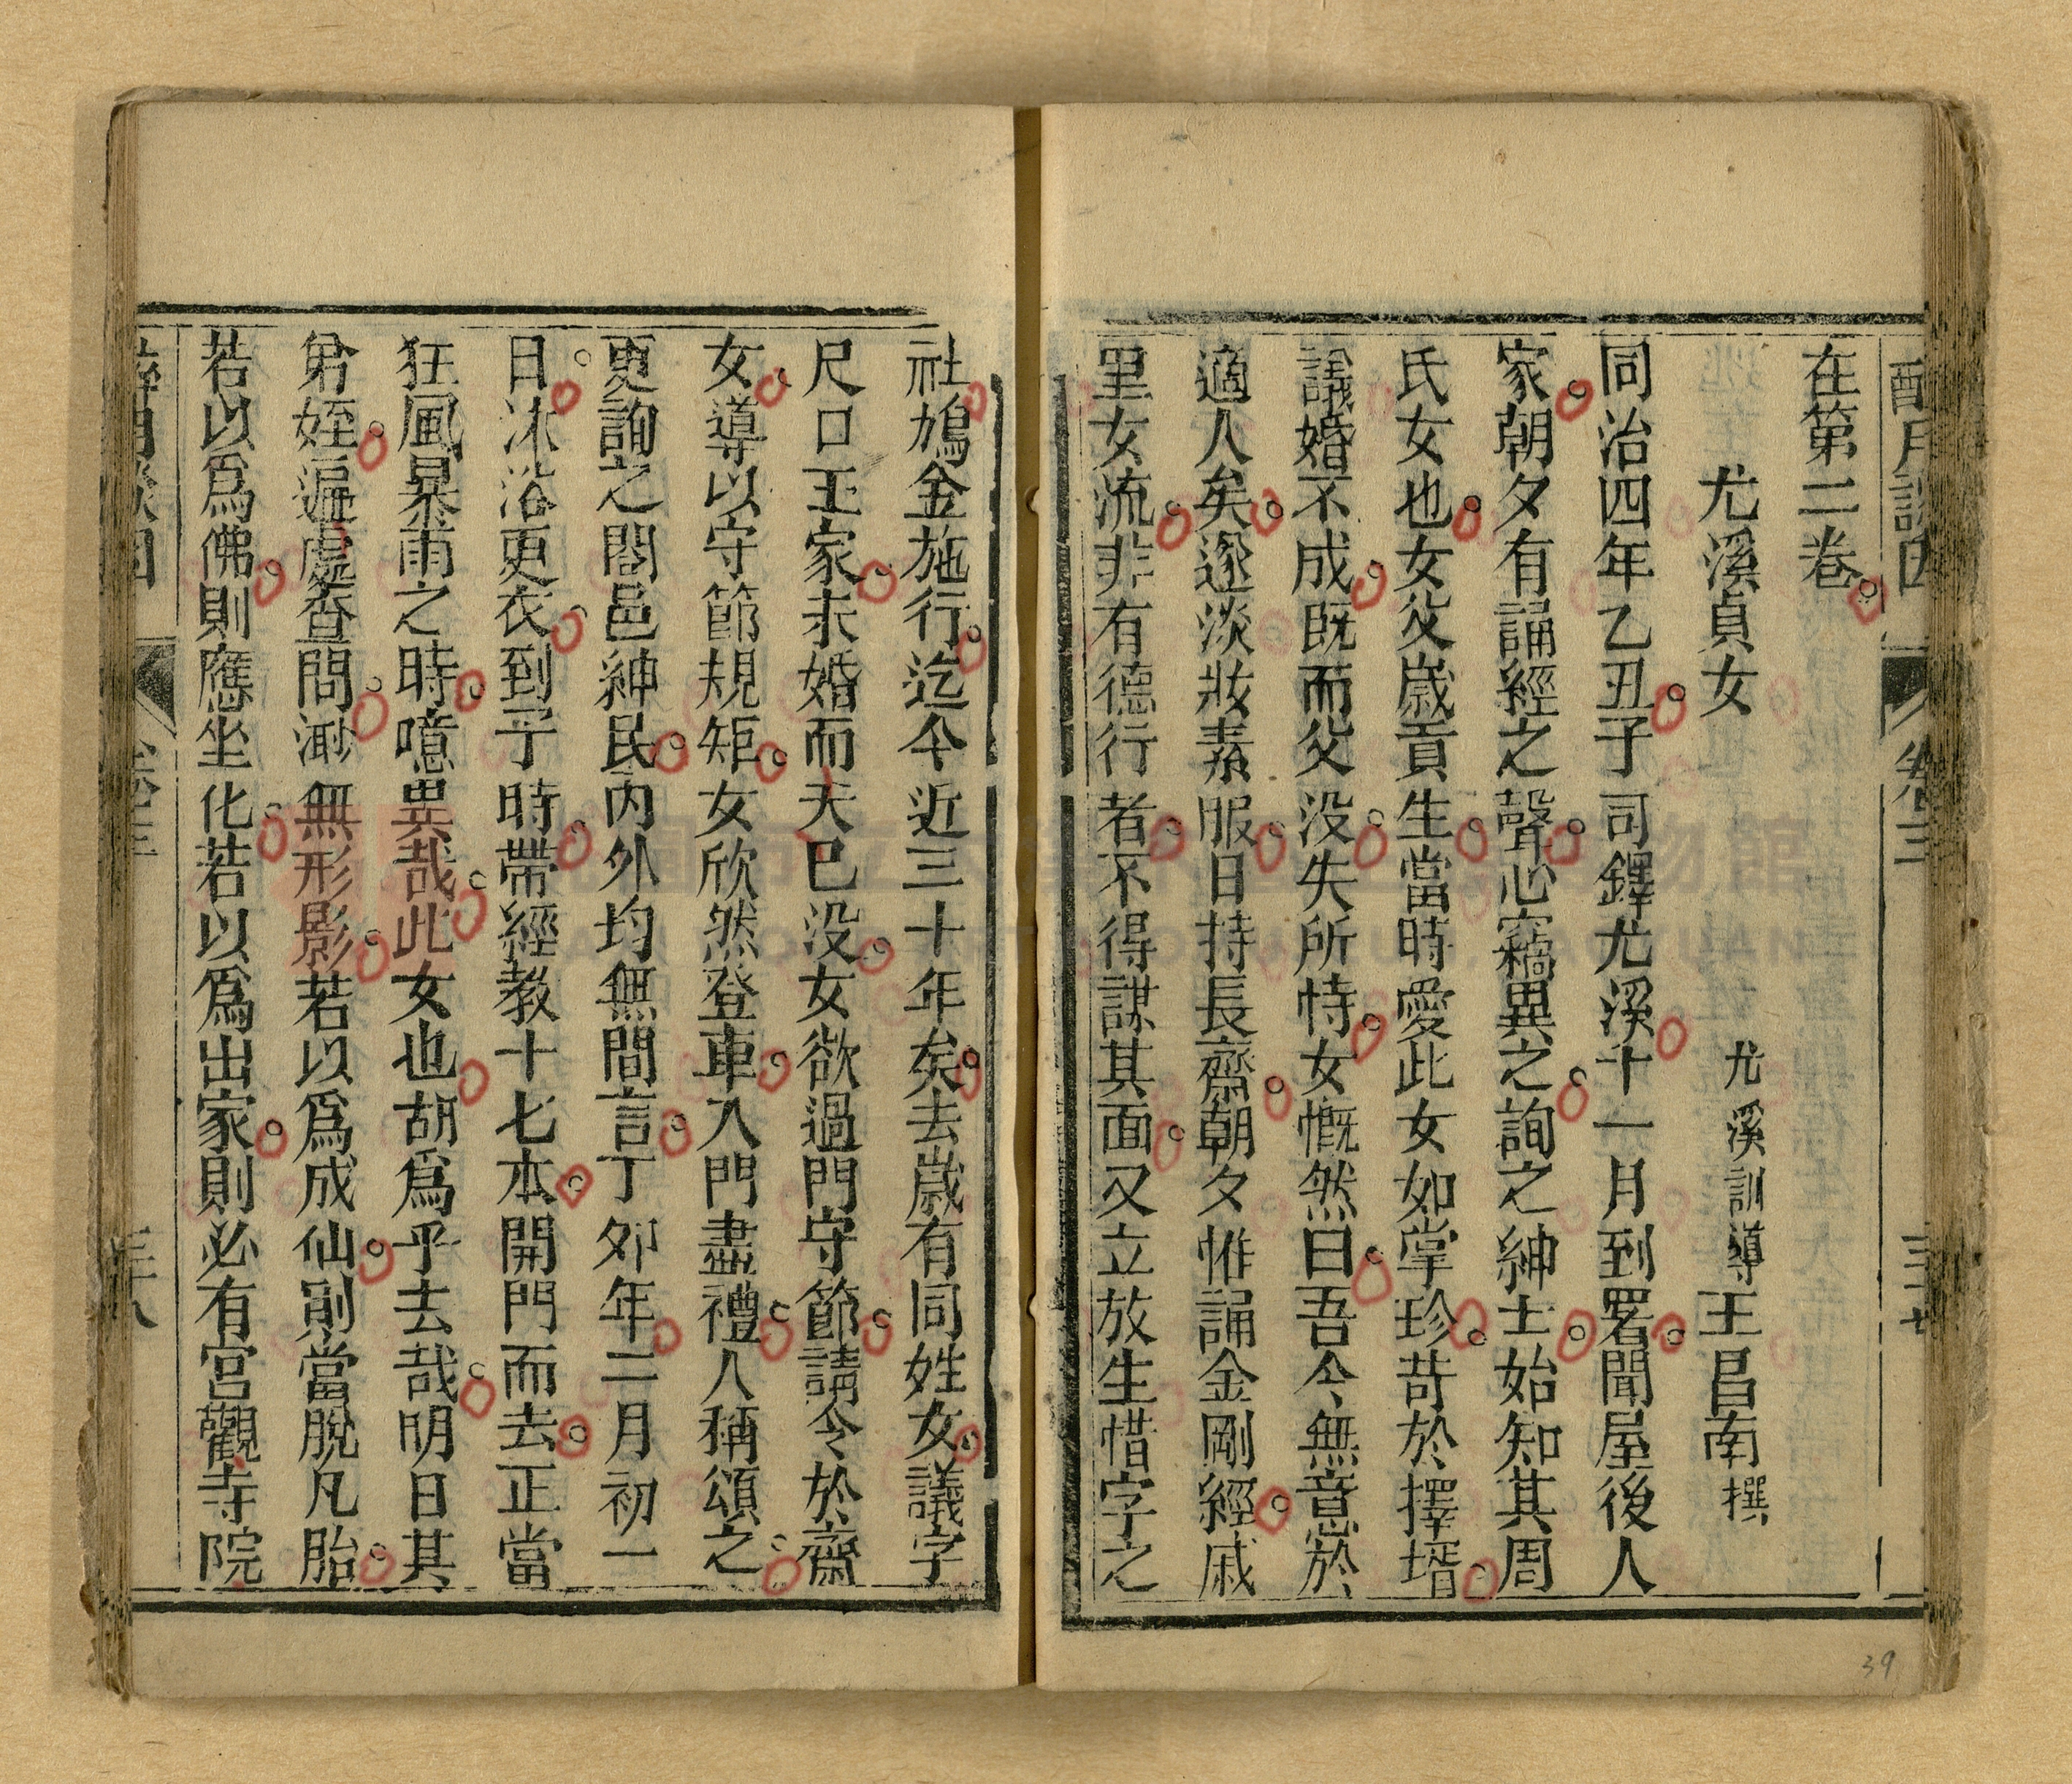 在第二卷
尤溪貞女　尤溪訓導王昌南撰
同治四年乙丑予司鐸尤溪十一月到署聞屋後人
家朝夕有誦經之聲心竊異之詢之紳士始知其周
氏女也女父歲貢生當時愛此女如掌珍苛於擇壻
議婚不成既而父没失所恃女慨然曰吾今無意於
適人矣遂淡妝素服日持長齋朝夕惟誦金剛經戚
里女流非有德行者不得謀其面又立放生惜字之
卷三
社鳩金施行迄今近三十年矣去歲有同姓女議字
尺口王家未婚而夭已没女欲過門守節請令於齋
女導以守節規矩女欣然登車入門盡禮人稱頌之
更詢之閤邑紳民內外均無間言丁夘年二月初一
日沐浴更衣到子時帶經教十七本開門而去正當
狂風暴雨之時噫異哉此女也胡爲乎去哉明日其
弟姪遍處查問渺無形影若以爲成仙則當脫凡胎
若以爲佛則應坐化若以爲出家則必有宮觀寺院